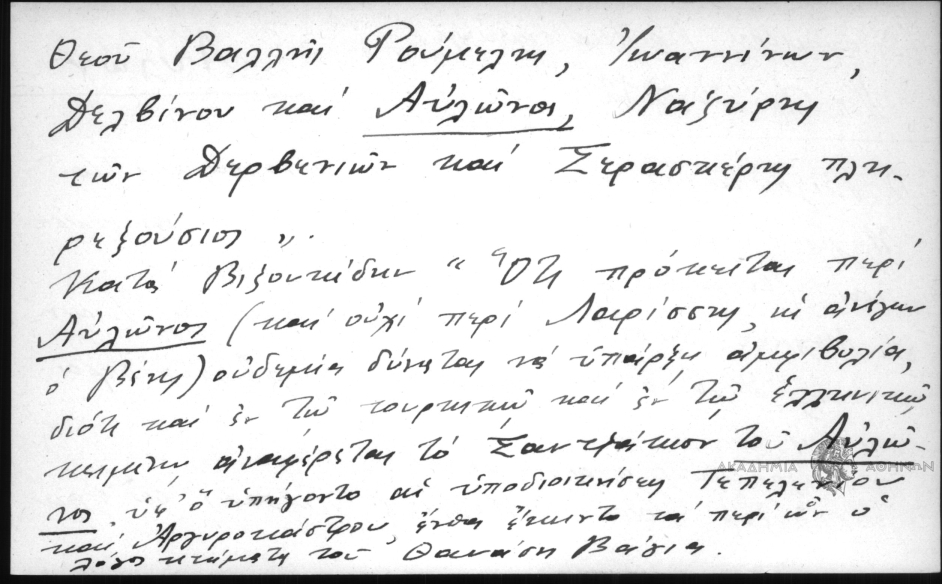 Θεοῦ Βαλλῆς Ρούμελης, Ἰωαννίνων,
Δελβίνου καί Αὐλῶνος, Ναζύρης
τῶν Δερβενιῶν καί Σερασκέρης πλη-
ρεξούσιος „.
Κατά Βιζουκίδην “ Ὅτι πρόκειται περί
Αὐλῶνος (καί οὐχί περί Λαρίσσης,
ὁ Βένης) οὐδεμία δύναται νά ὑπάρξῃ ἀμφιβολία,
διότι καί ἐν τῷ τουρκικῷ καί ἐν τῷ ἑλληνικῷ
κειμένῳ ἀναφέρεται τό Σαντζάκιον τοῦ Αὐλῶ-
νος, ὑφ’ ὅ ὑπήγοντο αἱ ὑποδιοικήσεις Τεπελενίου
καί Ἀργυροκάστρου, ἔνθα ἔκειντο τά περί ὧν ὁ
λόγος κτήματα τοῦ Θανάση Βάγια.
ΑΚΑΔΗΜΙΑ ΑΘΗΝΩΝ